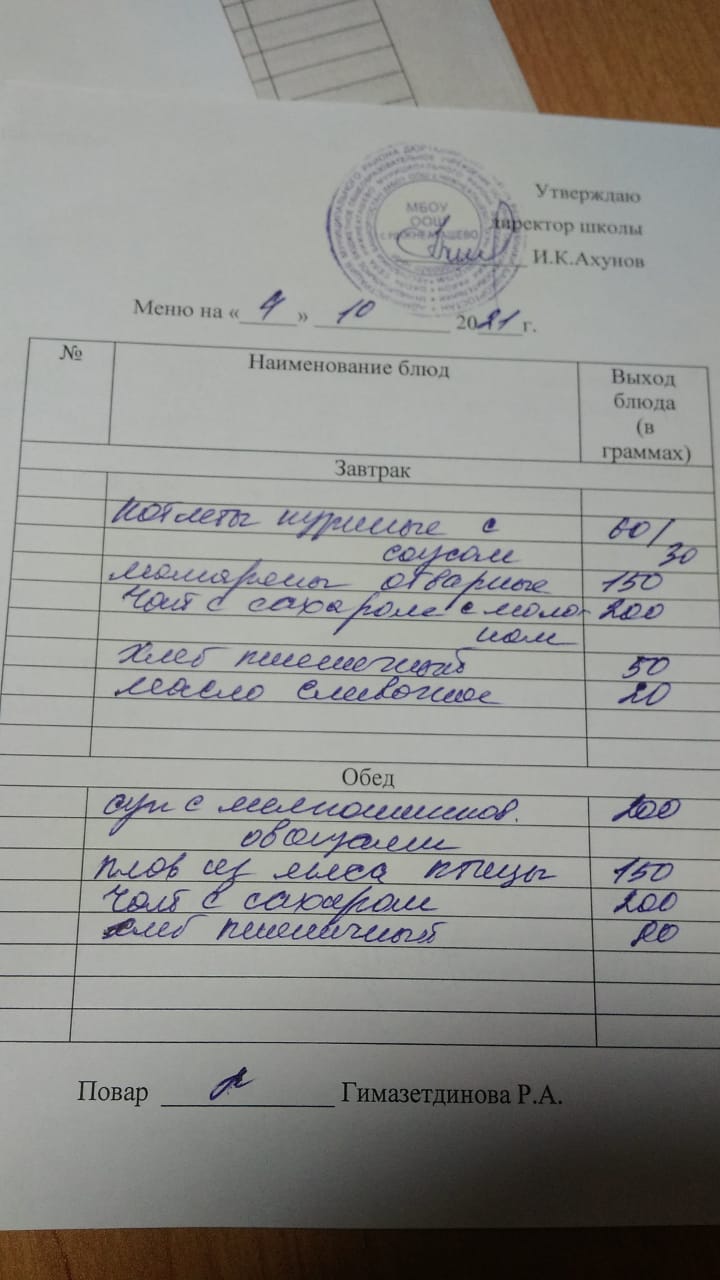 Утверждаю
директор школы
И.К.Ахунов
МБОУ
ООШ
Меню на «7» 10 2021 г.
№ Наименование блюд Выход
блюда
(в
граммах)
Завтрак
котлеты куриные с 60/
соусом 30
макароны отварные 150
чай с сахаром с моло- 200
ком
хлеб пшеничный 50
масло сливочное 20
Обед
суп с мелкошинков. 200
овощами
плов из мяса птицы 150
чай с сахаром 200
хлеб пшеничный
Повар Гимазетдинова Р.А.